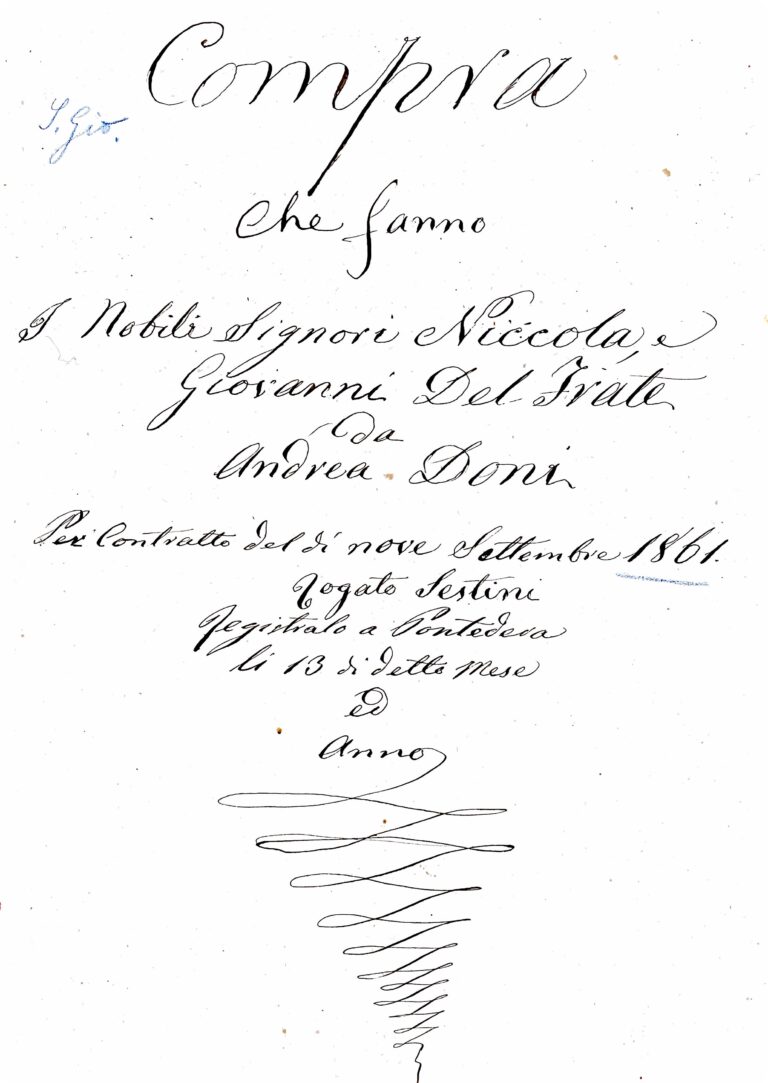 Compra
S. Gio.
Che fanno
I Nobili Signori Niccola, e
Giovanni Del Frate
da
Andrea Doni
Per Contratto del dì nove Settembre 1861.
Rogato Sestini
Registrato a Pontedera
li 13 di detto Mese
ed
Anno